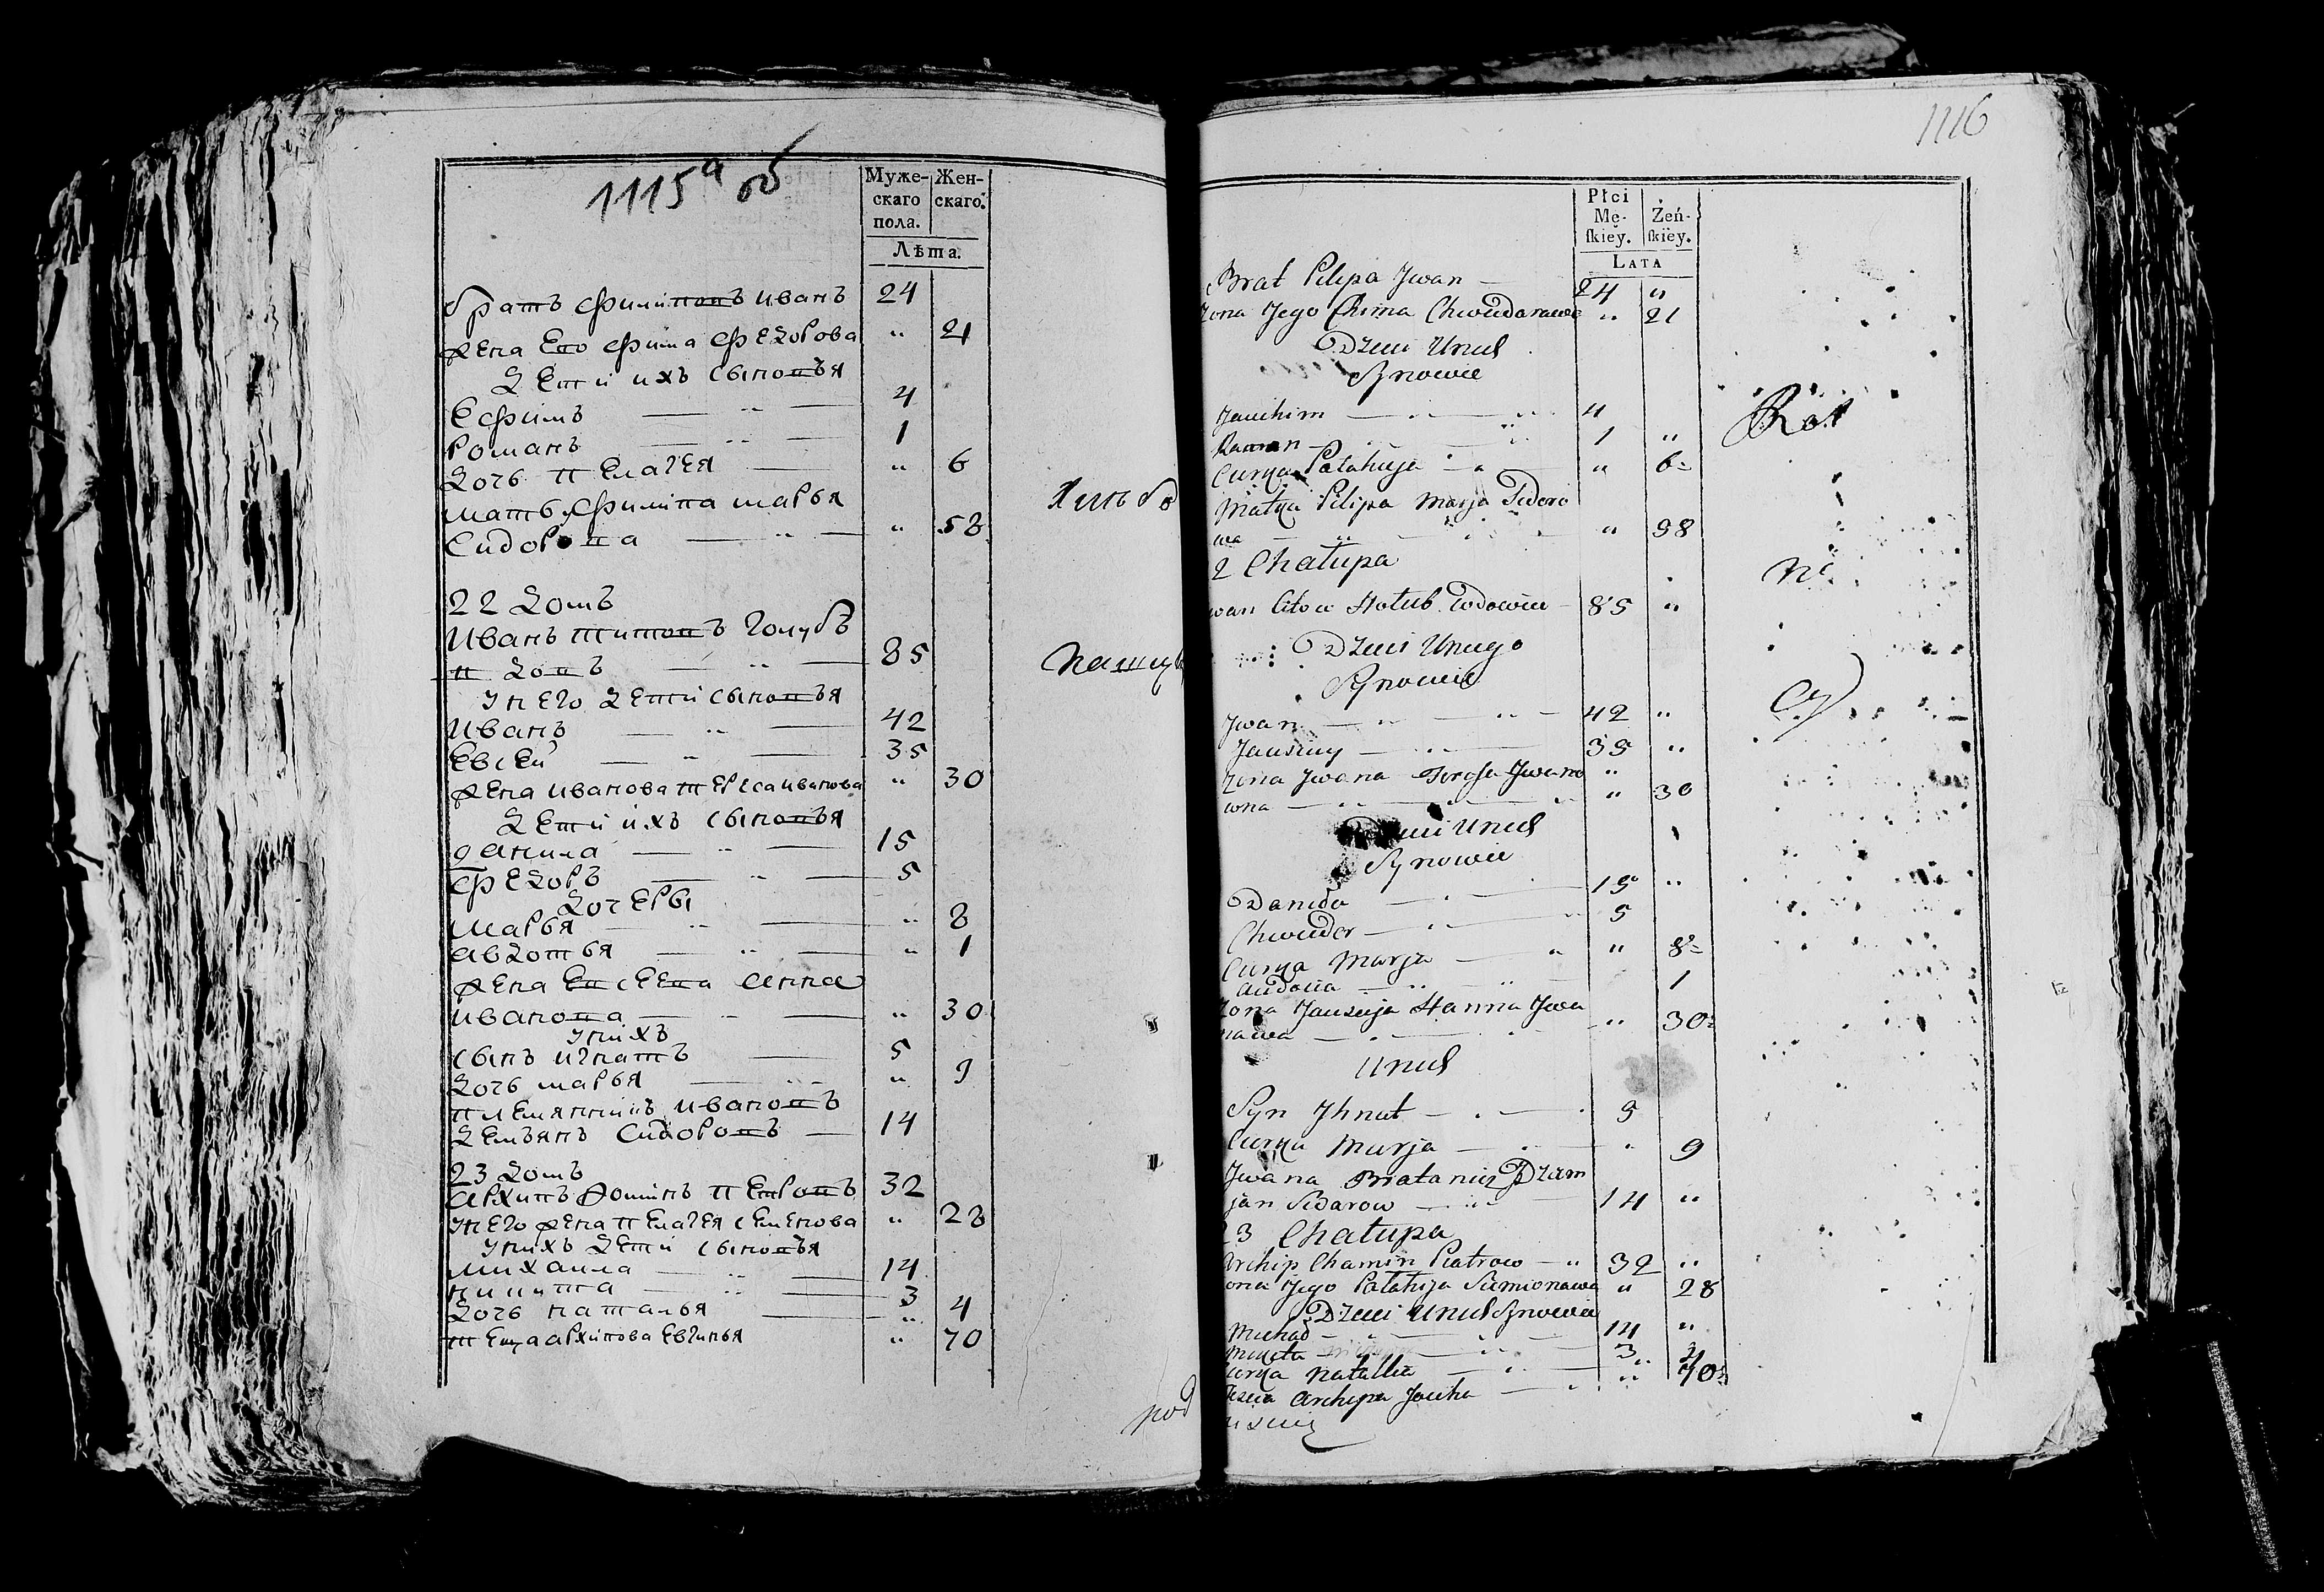 1115а об
Муже-
скаго
пола.
Жен-
скаго.
Лѣта.
братъ Филиповъ Иванъ 24
жена Его Фима Федорова " 21
Дети ихъ сыновья
Ефимъ — " — 4
Романъ — " — 1
Дочь Пелагея — " 6
мать Филипа Марья
Сидорова — " — " 58
22 Домъ
Иванъ Титовъ Голубъ
вдовъ — " — 85
У него Дети сыновья
Иванъ — " — 42
Евсей — " — 35
жена Иванова Тереса Иванова " 30
Дети ихъ сыновья
Данила — " — 15
Федоръ — " — 5
Дочеры
Марья — " — " 8
Авдотья — " — " 1
жена Евсеева Анна
Иванова — " — " 30
У нихъ
сынъ Игнатъ — 5
Дочь Марья — " 9
племянникъ Ивановъ
Демьянъ Сидоровъ — 14
23 Домъ
Архипъ Фоминъ Петровъ 32
У него жена Пелагея Семенова " 28
У нихъ Дети сыновья
Михаила — " — 14
Никита — " — 3
Дочь Наталья — " 4
теща Архипова Евгинья " 70
pod
1116
Płci
Mę-
ſkiéy.
Żeń-
ſkiéy.
LATA
Brat Pilipa Jwan — 24 "
Zona Jego Chima Chwiedarawa " 21
Dzieci Unich
Synowie
Jauchim — " — 4
Raman — " — 1 "
Curka Pałahieja — " 6
Matka Pilipa Marja Sidoro
wa — " — " 98
2 Chałupa
wan Citow Hołub Wdowiec — 85 "
Dzieci Uniego
Synowie
Jwan — " — 42 "
Jausiey — " — 35 "
Zona Jwana Teresa Jwano "
wna — " — " 30
Dzieci Unich
Synowie
Daniło — 15 "
Chwieder — 5
Curka Marja — " " 8
Audocia — " — 1
Zona Jausieja Hanna Jwa
nawa — " 30
Unich
Syn Jhnat — 5
Curka Marja — " 9
Jwana Bratanieg Dziam
jan Sidarow — 14 "
23 Chałupa
Archip Chamin Piatrow — " 32 "
ona Jego Pałahija Siemionawa " 28
Dzieci Unich Synowie
Michał — 14 "
Mikita — 3
urka Natallia — "
Archipa Jauhi — " 70